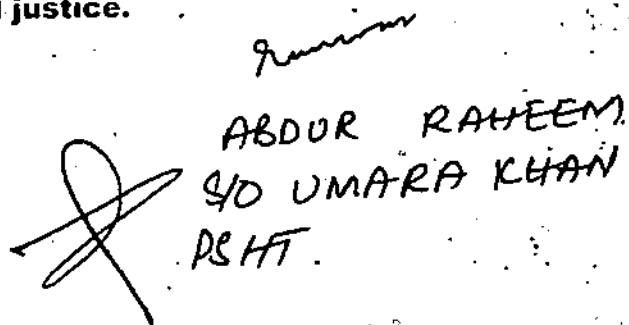 justice.
ABDUR RAHEEM
S/O UMARA KHAN
PSHT.